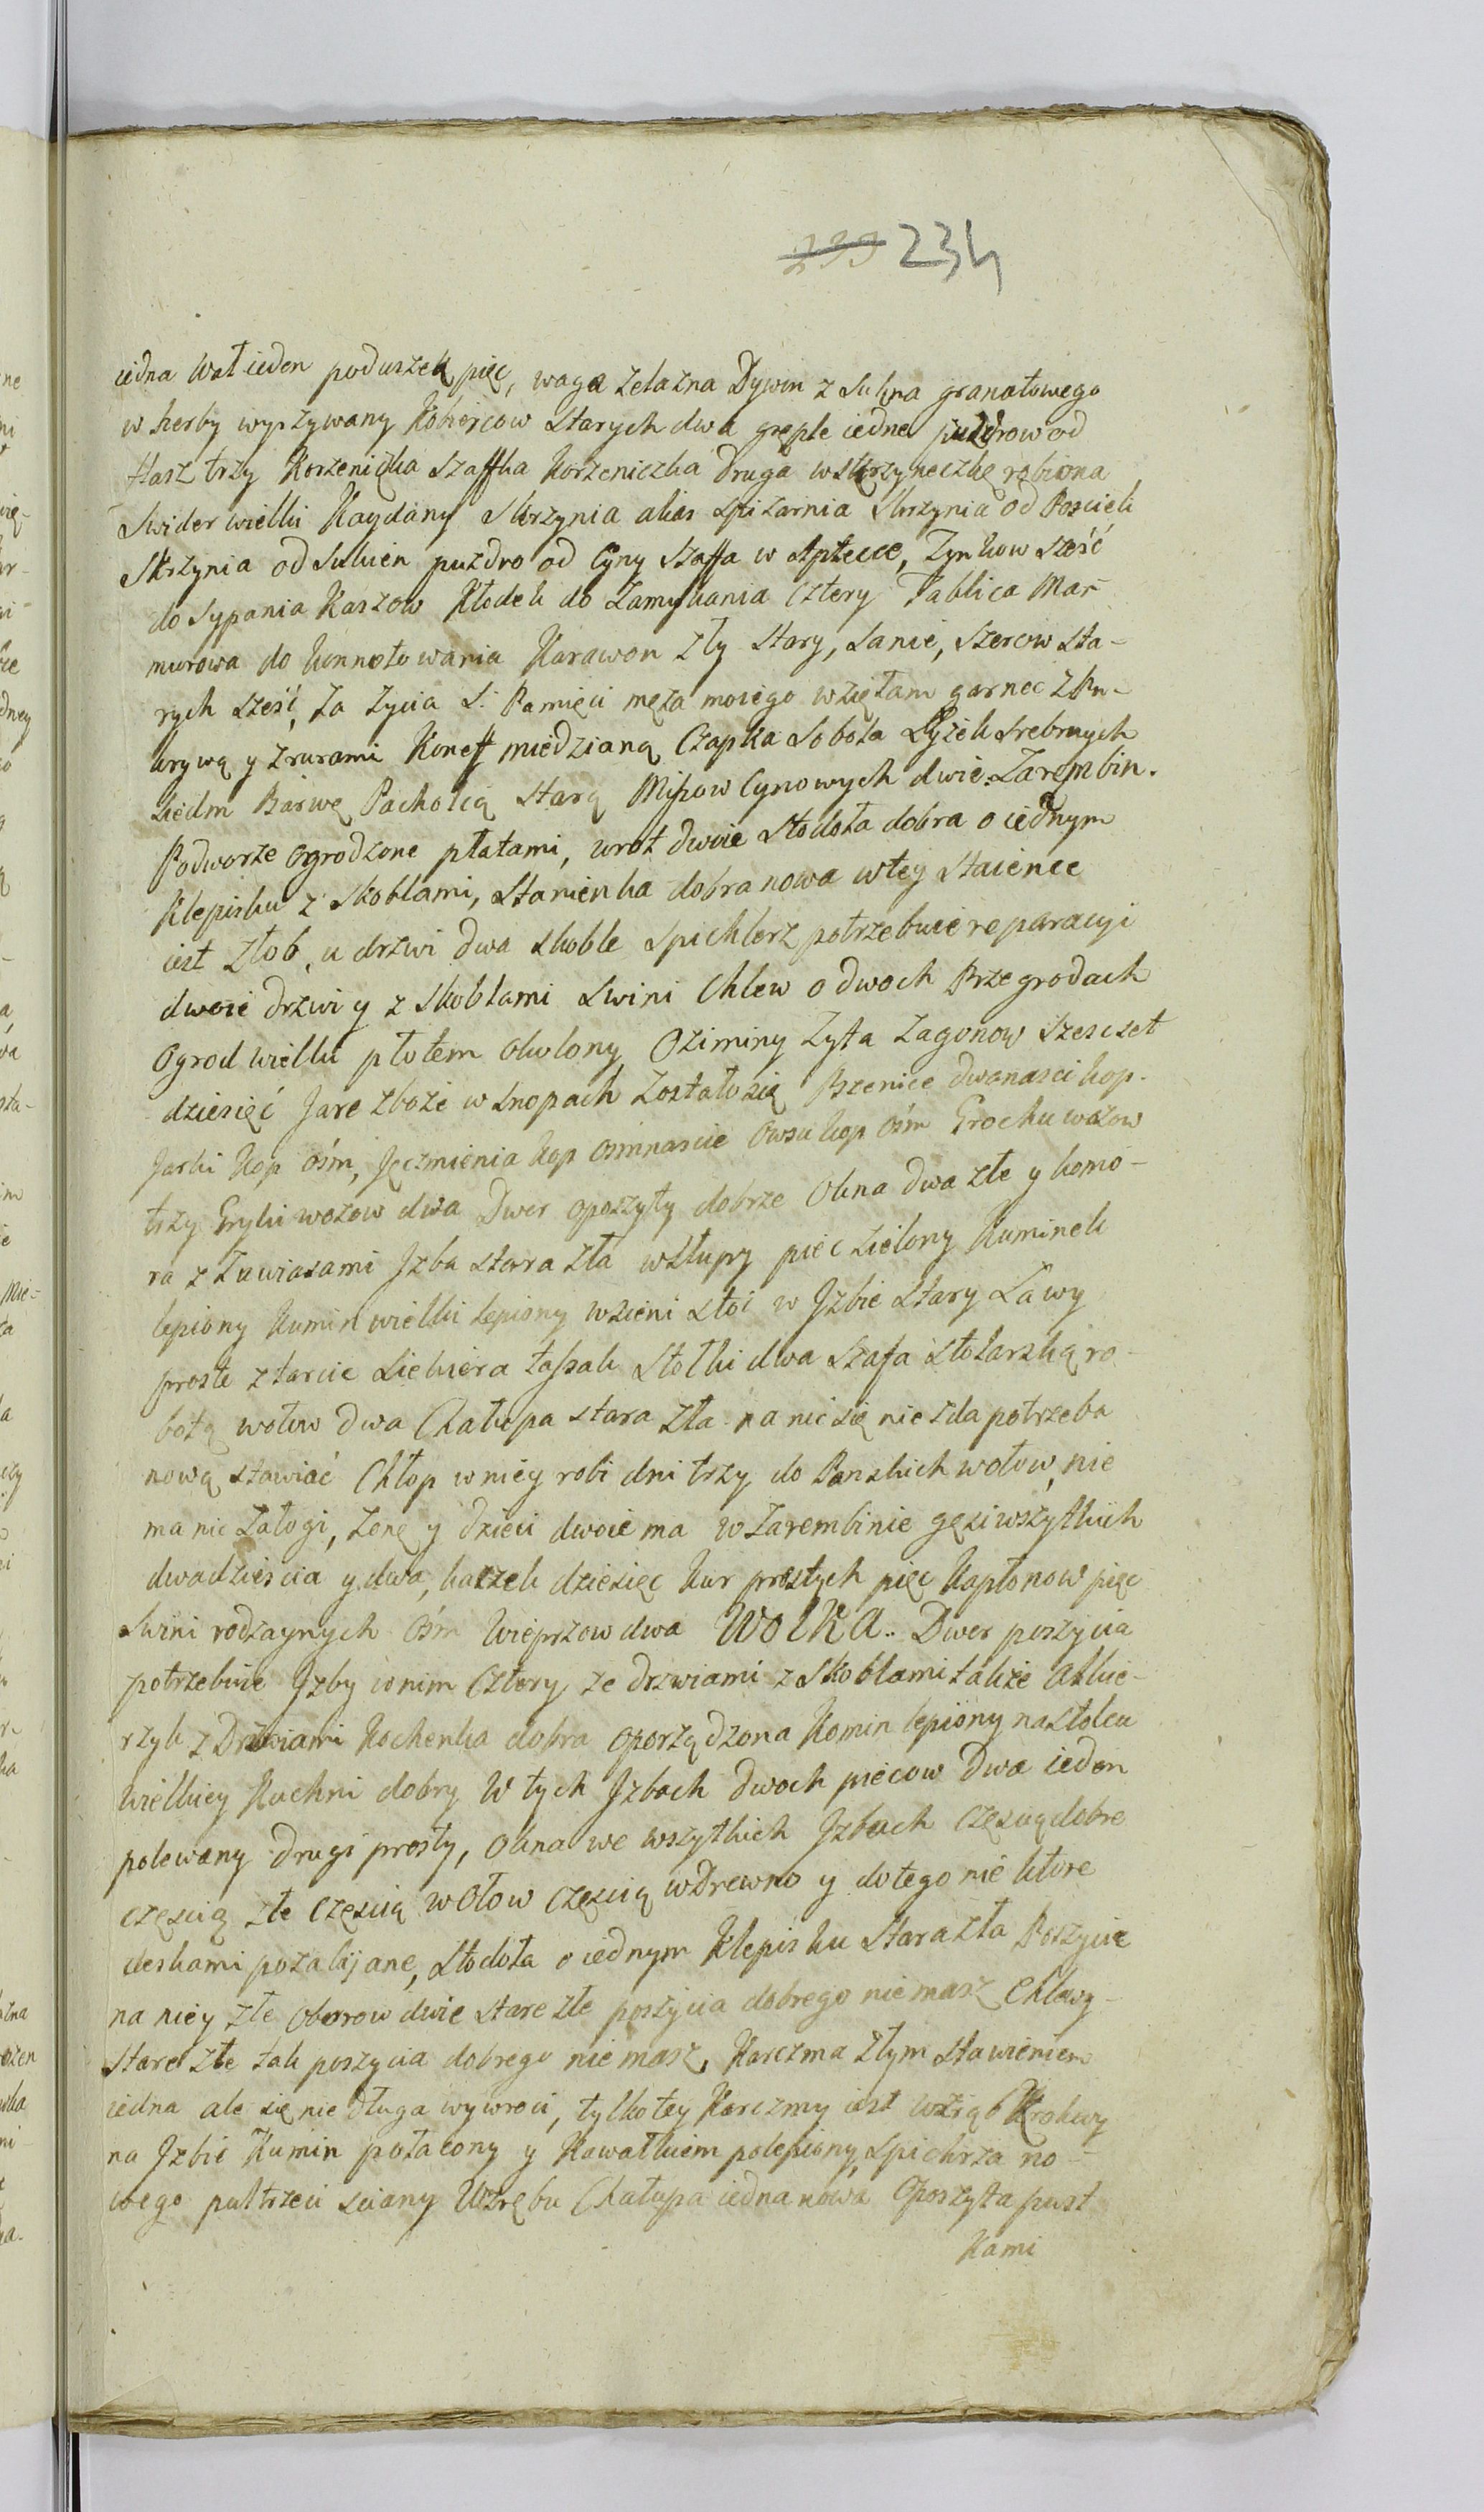 234
iedna Wał ieden poduszek pięc, waga zelazna Dywin z Sukna granatowego
w herby wyszywany Kobiercow starych dwa gręple iedne puzdrow od
flasz trzy Korzeniczka szaffka korzeniczka druga w skrzyneczkę robiona
Swider wielki Kaydany Skrzynia alias spizarnia Skrzynia od Poscieli
Skrzynia od Sukien puzdro od Cyny Szaffa w Aptecce, Zynkow sześć
do sypania Kaszow Kłodek do Zamykania Cztery Tablica Mar-
murowa do konnotowania Karawon Zły stary, Sanie, Szerow sta-
rych sześć, za zycia S: Pamięci męza moiego wziętam garnec z Pu-
krywą y z rurami Koneff miedzianą Czapka Sobola Łyżek Srebrnych
siedm Barwę Pacholcą starą Missow Cynowych dwie. Zarembin.
Podworze ogrodzone płatami, wrot dwoie Stodoła dobra o iednym
Klepisku z Skoblami, Stanienka dobra nowa w tey staience
iest Złob, u drzwi dwa skoble Spichlerz potrzebuie reparacyi
dwoie drzwi y z Skoblami Swini Chlew o dwoch Przegrodach
Ogrod wielki płotem okolony Oziminy Zyta Zagonow szescset
dziesięć Jare zboże w Snopach Zostało się Pszenice dwanasci kop.
Jarki Kop óśm, Jęczmienia kop ośmnascie Owsa kop óśm Grochu wozow
trzy Gryki wozow dwa Dwor oposzyty dobrze Okna dwa złe y komo-
ra z Zawiasami Jzba stara zła w słupy piec zielony Kuminek
lepiony Kumin wielki lepiony w sieni stoi w Jzbie stary Ławy
proste z tarcic Siekiera tassak stołki dwa Szafa stolarską ro-
botą wołow dwa Chałupa stara zła na nic się nie zda potrzeba
nową stawiać Chłop w niey robi dni trzy do Panskich wołow, nie
ma nic Załogi, zonę y dzieci dwoie ma w Zarembinie gęsi wszytkich
dwadzieścia y dwa, kaczek dziesięc kur prostych pięc Kapłonow pięc
Swini rodzaynych óśm Wieprzow dwa Wolka.. Dwor poszycia
potrzebuie Jzby w nim Cztery ze drzwiami z Skoblami także alkie-
rzyk z Drzwiami Kochenka dobra oporządzona Komin lepiony na stolcu
wielkiey Kuchni dobry W tych Jzbach dwoch piecow Dwa ieden
polewany drugi prosty, Okna we wszytkich Jzbach Częscią dobre
częscią złe Częscią w Ołow Częscią w Drewno y do tego nie ktore
deskami pozabijane, Stodoła o iednym Klepisku Stara zła Poszycie
na niey złe Oborow dwie stare złe poszycia dobrego nie masz Chlewy
stare złe tak poszycia dobrego nie masz, Karczma Złym stawieniem
iedna ale się nie długa wywroci, tylko tey Karczmy iest wzrąb Krokwy
na Jzbie Kumin potacony y Kawałkiem polepiony, spichrza no-
wego pułtrzeci sciany Wzrębu Chałupa iedna nowa Oposzyta pust
Kami